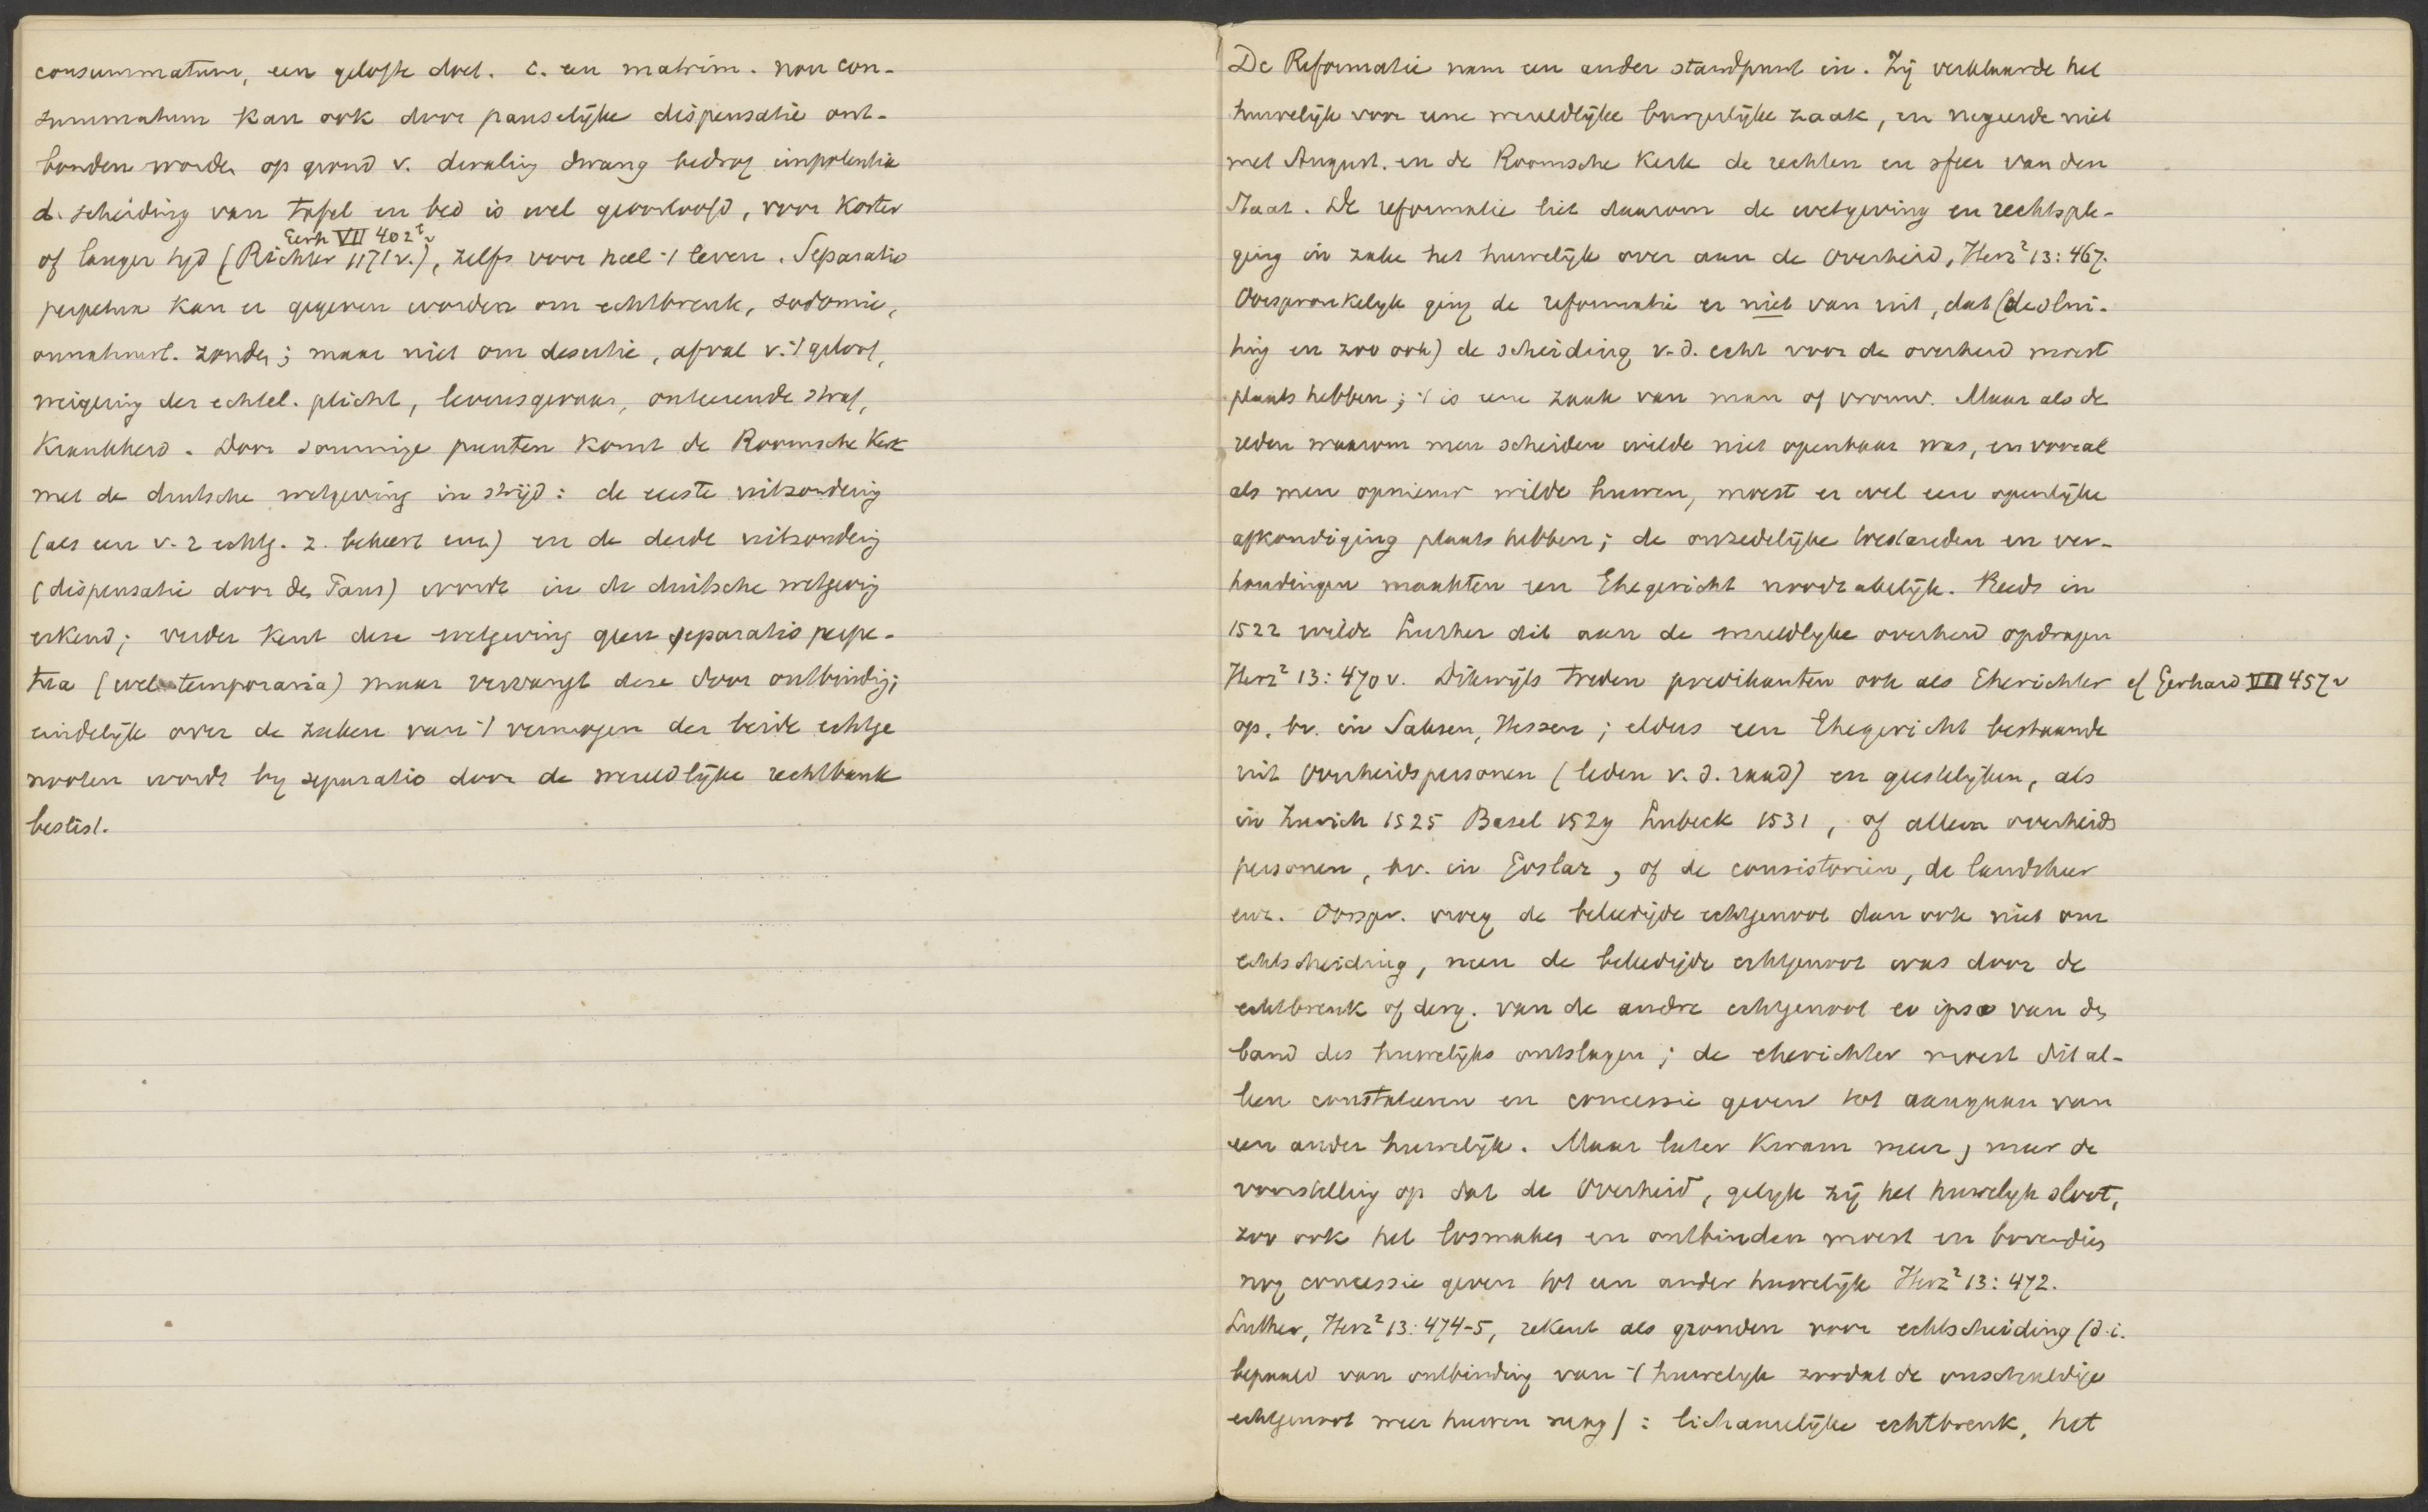 consummatum, een gelofte doet. c. een matrim. non con-
summatum kan ook door pauselijke dispensatie ont-
bonden worden op grond v. dwaling dwang bedrog impotentia
d. scheiding van tafel en bed is wel geoorloofd, voor korter
Gerh VII 402
of langer tijd (Richter 1171 v.), zelfs voor heel 't leven. Separatio
perpetua kan er gegeven worden om echtbreuk, sodomie,
onnatuurl. zonden; maar niet om desertie, afval v. 't geloof,
weigering der echtel. plicht, levensgevaar, onteerende straf,
krankheid. Door sommige punten komt de Roomsche Kerk
met de duitsche wetgeving in strijd: de eerste uitzondering
(als een v. 2 echtg. z. bekeert enz.) en de derde uitzondering
(dispensatie door den Paus) wordt in de duitsche wetgeving
erkend; verder kent deze wetgeving geen separatio perpe-
tua (wel temporaria) maar vervangt deze door ontbinding;
eindelijk over de zaken van 't vermogen der beide echtge
nooten wordt by separatio door de wereldlijke rechtbank
beslist.
De Reformatie nam een ander standpunt in. Zij verklaarde het
huwelijk voor eene wereldlijke burgerlijke zaak, en negeerde niet
met August. en de Roomsche Kerk de rechten en sfeer van den
Staat. De reformatie liet daarom de wetgeving en rechtsple-
ging in zake het huwelijk over aan de Overheid, Herz² 13: 467.
Oorspronkelijk ging de reformatie er niet van uit, dat (de slui-
ting en zoo ook) de scheiding v. d. echt voor de overheid moest
plaats hebben; 't is eene zaak van man of vrouw. Maar als de
reden waarom men scheiden wilde niet openbaar was, en vooral
als men opnieuw wilde huwen, moest er wel een openlijke
afkondiging plaats hebben; de onzedelijke toestanden en ver-
houdingen maakten een Ehegericht noodzakelijk. Reeds in
1522 wilde Luther dit aan de wereldlijke overheid opdragen
Herz² 13: 470 v. Dikwijls treden predikanten ook als Eherichter cf Gerhard VII 457 v
op, bv. in Saksen, Hessen; elders een Ehegericht bestaande
uit Overheidspersonen (leden v. d. raad) en geestelijken, als
in Zurich 1525 Basel 1529 Lubeck 1531, of alleen overheids
personen, bv. in Goslar, of de consistoriën, de landsheer
enz. Oorspr. vroeg de beleedigde echtgenoot dan ook niet om
echtscheiding, neen de beleedigde echtgenoot was door de
echtbreuk of derg. van de andre echtgenoot eo ipso van den
band des huwelijks ontslagen; de eherichter moest dit al-
leen constateeren en concessie geven tot aangaan van
een ander huwelijk. Maar later kwam meer, meer de
voorstelling op dat de Overheid, gelijk zij het huwelijk sloot,
zoo ook het losmaken en ontbinden moest en bovendien
nog concessie geven tot een ander huwelijk Herz² 13: 472.
Luther, Herz² 13: 474-5, rekent als gronden voor echtscheiding (d.i.
bepaald van ontbinding van 't huwelijk zoodat de onschuldige
echtgenoot weer huwen mag): lichamelijke echtbreuk, het